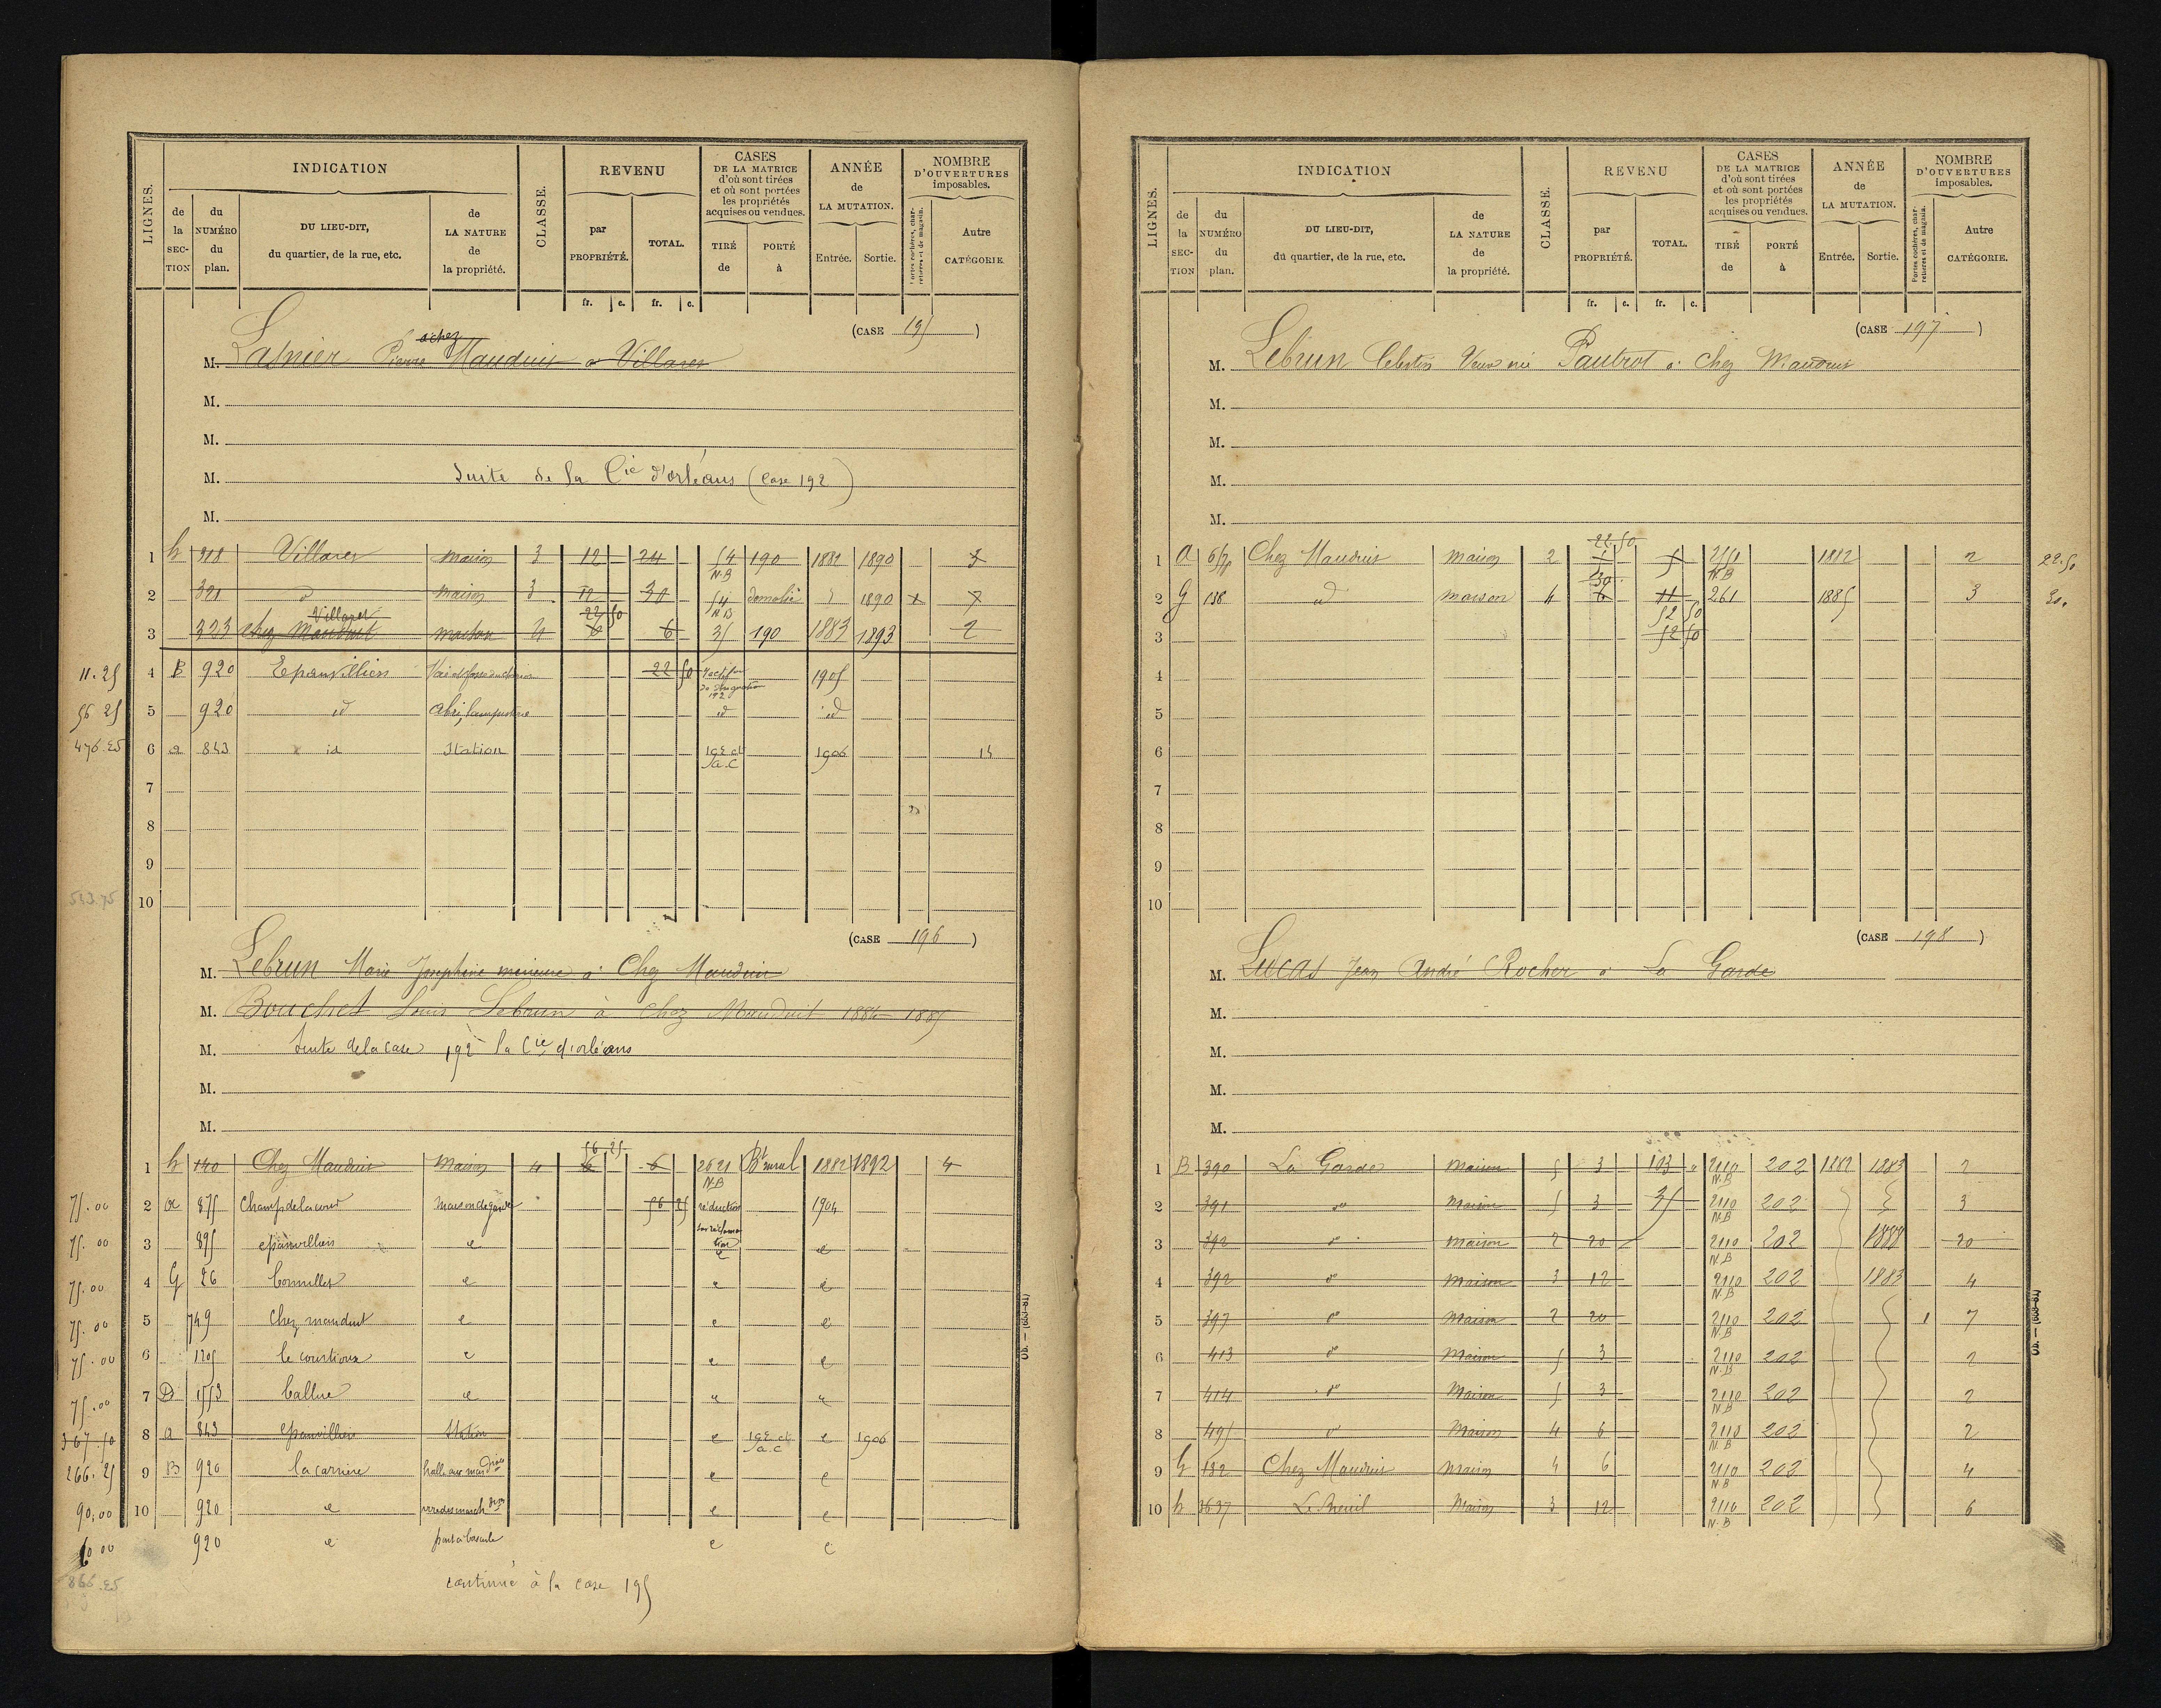 LIGNES.
INDICATION
CLASSE.
REVENU
CASES
DE LA MATRICE
d'où sont tirées
et où sont portées
les propriétés
acquises ou vendues.
ANNÉE
de
LA MUTATION.
NOMBRE
D'OUVERTURES
imposables.
de la SEC-TION
du NUMÉRO du plan.
DU LIEU-DIT,
du quartier, de la rue, etc.
de LA NATURE de la propriété.
par PROPRIÉTÉ.
TOTAL.
TIRÉ de
PORTÉ à
Entrée.
Sortie.
Portes cochères, charretières et de magasin.
Autre CATÉGORIE.
fr. c. fr. c.
(CASE 195)
à chez
M. Lasnier Pierre Mauduit à Villaret
M.
M.
M. Suite de la Cie d'orléans (Case 192)
M.
1 h 318 Villaret maison 3 12 24 54 N.B 190 1882 1890 3
2 321 d° maison 3 12 30 54 N.B démolie 1890 1 7
Villaret 22 50
3 323 chez Mauduit maison 4 6 6 35 190 1883 1893 2
11.25 4 B 920 Epanvilliers 22 50 192 1905
56 25 5 920 id Abri id id
476.25 6 a 843 id Station 192 et a.c 1906 14
7
8
9
513.75 10
(CASE 196)
M. Lebrun Marie Josephine mineure à Chez Mauduit
M. Bouchet Louis Lebrun à Chez Mauduit 1884 1885
M. Suite de la case 192 la Cie d'orléans
M.
M.
56 25
1 h 140 Chez Mauduit Maison 4 6 6 2621 N.B Bt rural 1882 1892 4
75.00 2 a 875 Champ de la cour maison de garde 56 25 réduction sur réclamation 1904
75.00 3 895 epanvilliers e e e
75.00 4 G 26 e e e
75.00 5 749 Chez mauduit e e e
75.00 6 1205 le courtioux e e e
75.00 7 D 1553 e e e
367.50 8 a 843 epanvilliers Station e 192 et a.c e 1906
266.25 9 B 920 la carrière halle aux mardises e e
90,00 10 920 e e e
60 00 920 e pont à bascule e e
866.25
continué à la case 195
Ob. — (163-81)
LIGNES.
INDICATION
CLASSE.
REVENU
CASES
DE LA MATRICE
d'où sont tirées
et où sont portées
les propriétés
acquises ou vendues.
ANNÉE
de
LA MUTATION.
NOMBRE
D'OUVERTURES
imposables.
de la SEC-TION
du NUMÉRO du plan.
DU LIEU-DIT,
du quartier, de la rue, etc.
de LA NATURE de la propriété.
par PROPRIÉTÉ.
TOTAL.
TIRÉ de
PORTÉ à
Entrée.
Sortie.
Portes cochères, charretières et de magasin.
Autre CATÉGORIE.
fr. c. fr. c.
(CASE 197)
M. Lebrun Célestin Veuve née Pautrot à Chez Mauduit
M.
M.
M.
M.
22.50
1 a Chez Mauduit maison 2 5 5 2151 N.B 1882 2 22.50
30
2 G 138 id maison 4 6 11 261 1885 3 30.
52 50
3 52 50
4
5
6
7
8
9
10
(CASE 198)
M. Lucas Jean André Rocher à La Garde
M.
M.
M.
M.
1 B 390 La Garde Maison 5 3 103 2110 N.B 202 1882 1883 2
2 391 d° Maison 5 3 35 2110 N.B 202 3
3 392 d° Maison 2 20 2110 N.B 202 1888 20
4 392 d° Maison 3 12 2110 N.B 202 1883 4
5 397 d° Maison 2 20 2110 N.B 202 1 7
6 413 d° Maison 5 3 2110 N.B 202 2
7 414 d° Maison 5 3 2110 N.B 202 2
8 495 d° Maison 4 6 2110 N.B 202 2
9 G 182 Chez Mauduit Maison 4 6 2110 N.B 202 4
10 h Le Breuil Maison 3 12 2110 N.B 202 6
Ob. — (163-81)